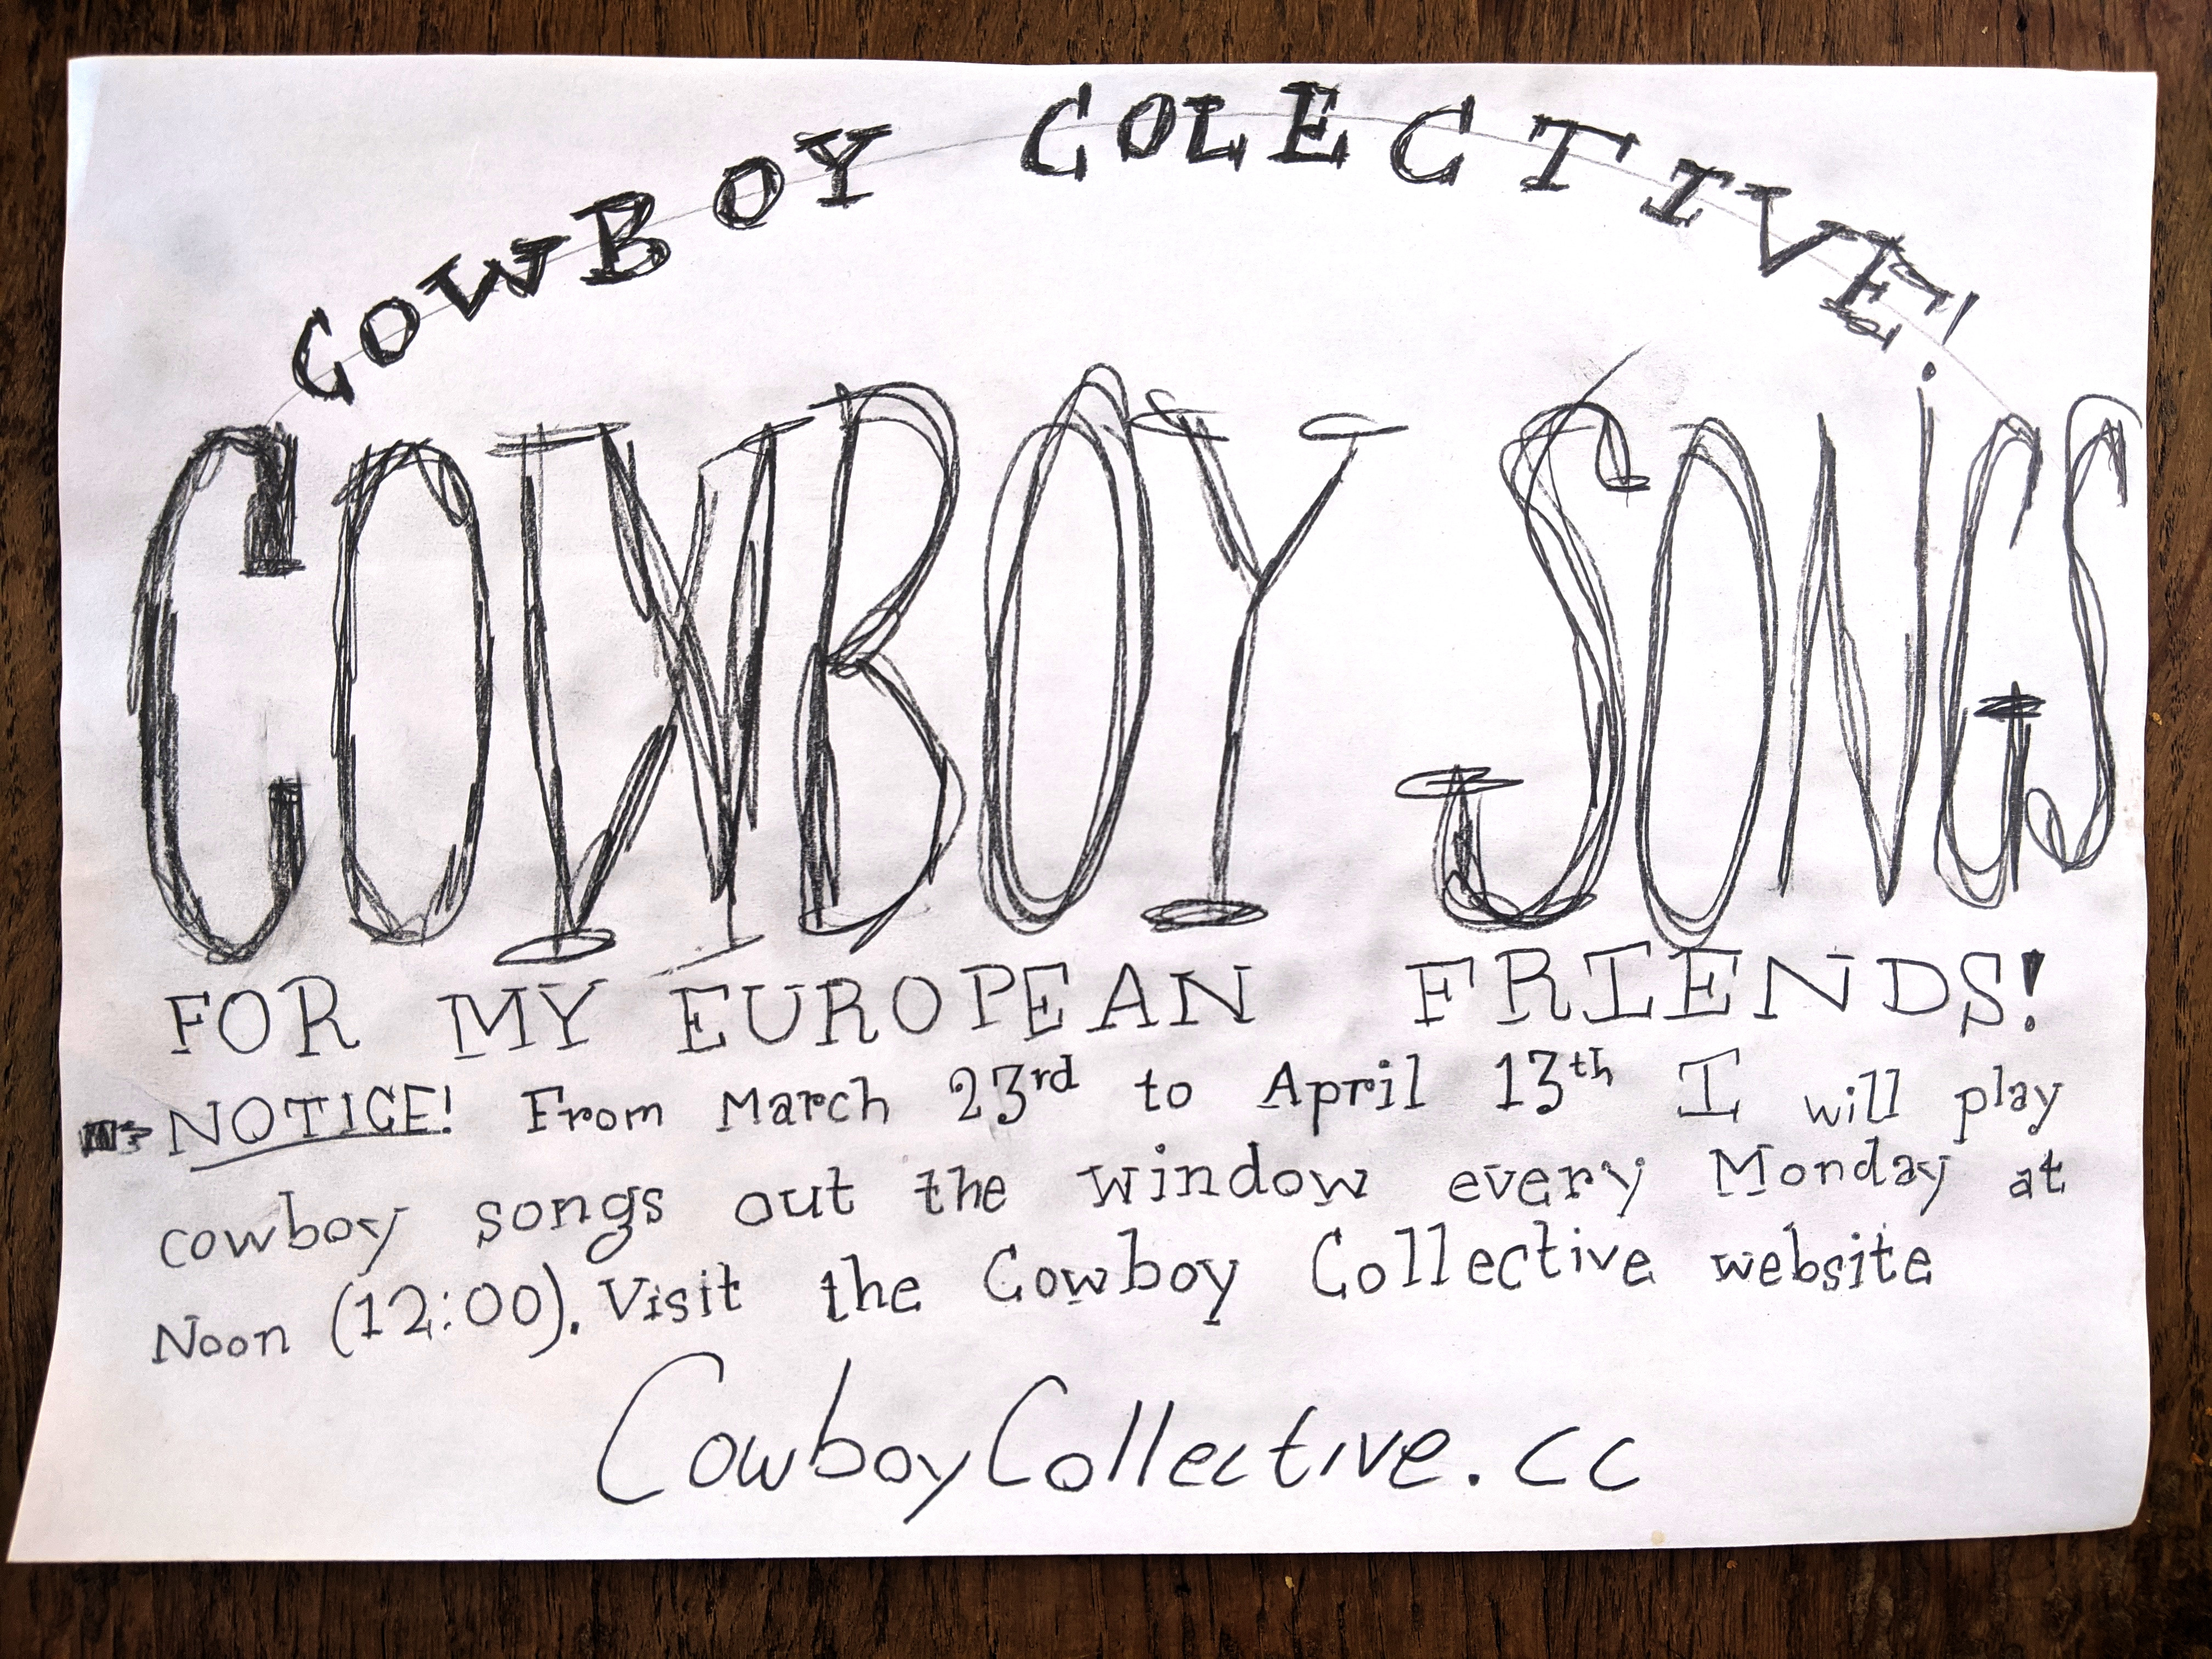 COWBOY COLECTIVE!
COWBOY SONGS
FOR MY EUROPEAN FRIENDS!
NOTICE! From March 23rd to April 13th I will play
cowboy songs out the window every Monday at
Noon (12:00). Visit the Cowboy Collective website
CowboyCollective.cc